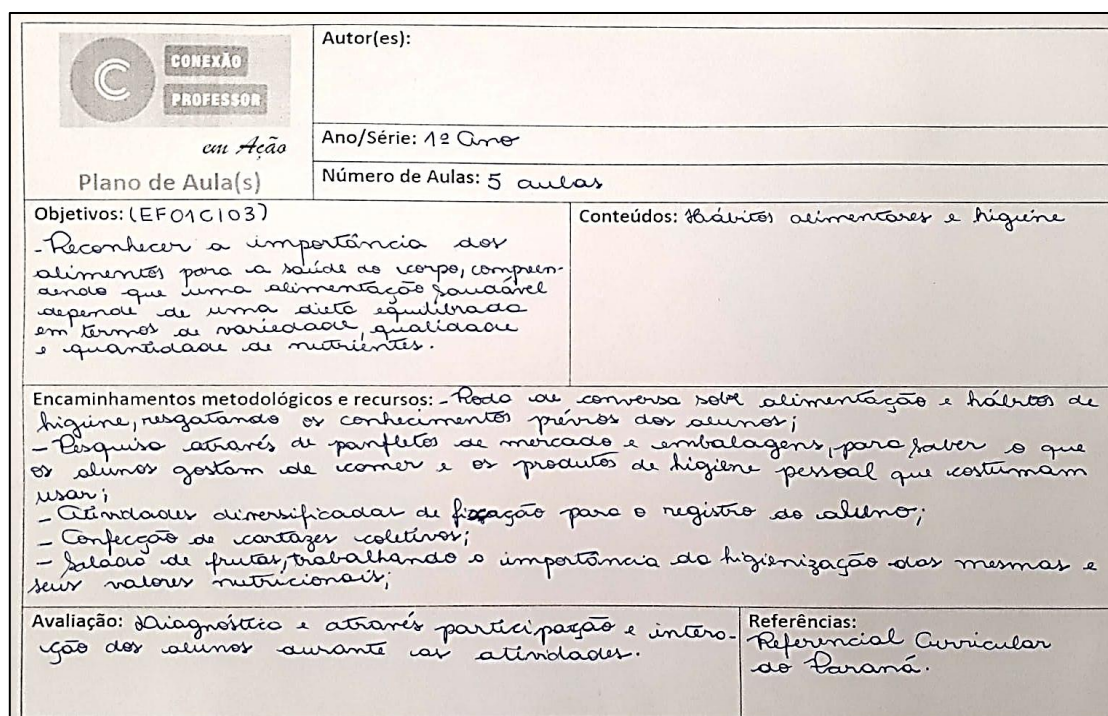 C
CONEXÃO
PROFESSOR
em Ação
Plano de Aula(s)
Autor(es):
Ano/Série: 1º Ano
Número de Aulas: 5 aulas
Objetivos: (EF01CI03)
- Reconhecer a importância dos
alimentos para a saúde do corpo, compreen-
dendo que uma alimentação saudável
depende de uma dieta equilibrada
em termos de variedade, qualidade
e quantidade de nutrientes.
Conteúdos: Hábitos alimentares e higiene
Encaminhamentos metodológicos e recursos: - Roda de conversa sobre alimentação e hábitos de
higiene, resgatando os conhecimentos prévios dos alunos;
- Pesquisa através de panfletos de mercado e embalagens, para saber o que
os alunos gostam de comer e os produtos de higiene pessoal que costumam
usar;
- Atividades diversificadas de fixação para o registro do aluno;
- Confecção de cartazes coletivos;
- Salada de frutas, trabalhando a importância da higienização das mesmas e
seus valores nutricionais;
Avaliação: Diagnóstica e através participação e intera-
ção dos alunos durante as atividades.
Referências:
Referencial Curricular
do Paraná.